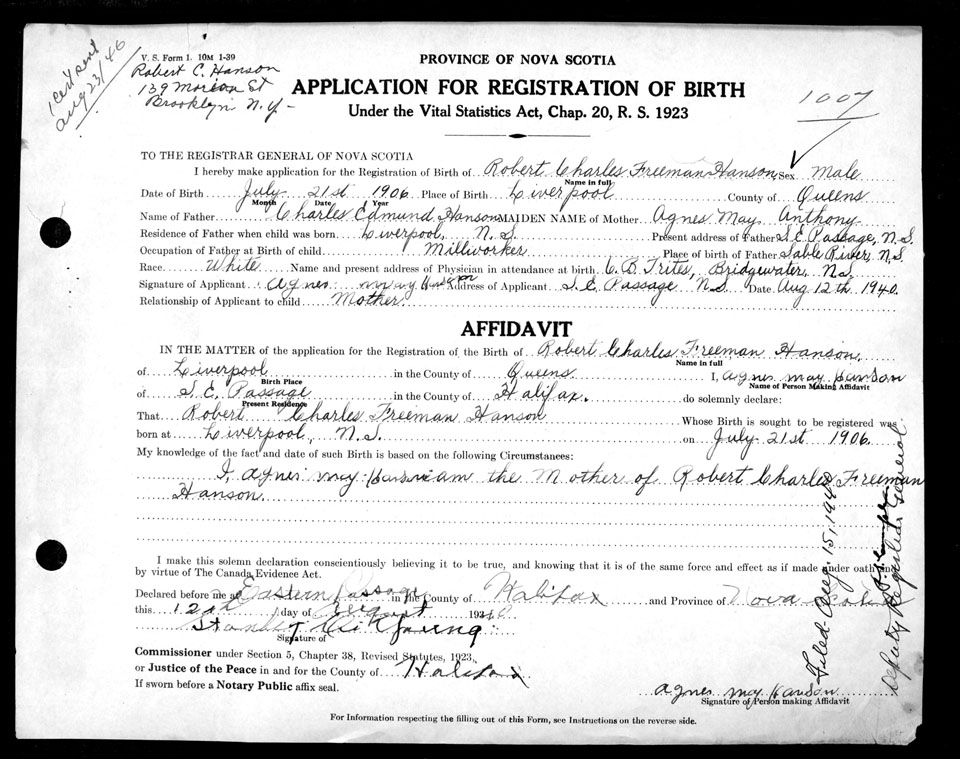 1 cert sent
Aug 23/46
V. S. Form 1. 10M 1-39
Robert C. Hanson
139 Morion St
Brooklyn N.Y-
PROVINCE OF NOVA SCOTIA
APPLICATION FOR REGISTRATION OF BIRTH
Under the Vital Statistics Act, Chap. 20, R. S. 1923
1007
TO THE REGISTRAR GENERAL OF NOVA SCOTIA
I hereby make application for the Registration of Birth of Robert Charles Freeman Hanson Sex Male
Name in full
Date of Birth July 21st 1906 Place of Birth Liverpool County of Queens
Month Date Year
Name of Father Charles Edmund Hanson MAIDEN NAME of Mother Agnes May Anthony
Residence of Father when child was born Liverpool, N.S. Present address of Father S.E. Passage, N.S.
Occupation of Father at Birth of child Millworker Place of birth of Father Sable River, N.S.
Race White Name and present address of Physician in attendance at birth C.B. Trites, Bridgewater, N.S.
Signature of Applicant Agnes may Hanson Address of Applicant S.E. Passage N.S. Date Aug 12th 1940.
Relationship of Applicant to child Mother
AFFIDAVIT
IN THE MATTER of the application for the Registration of the Birth of Robert Charles Freeman Hanson
Name in full
of Liverpool in the County of Queens I, agnes may Hanson
Birth Place Name of Person Making Affidavit
of S.E. Passage in the County of Halifax. do solemnly declare:
Present Residence
That Robert Charles Freeman Hanson Whose Birth is sought to be registered was
born at Liverpool, N.S. on July 21st 1906.
My knowledge of the fact and date of such Birth is based on the following Circumstances:
I, agnes may Hanson am the Mother of Robert Charles Freeman
Hanson
I make this solemn declaration conscientiously believing it to be true, and knowing that it is of the same force and effect as if made under oath and
by virtue of The Canada Evidence Act.
Declared before me at Eastern Passage in the County of Halifax and Province of Nova Scotia
this 12th day of August 1940
Signature of
Commissioner under Section 5, Chapter 38, Revised Statutes, 1923,
or Justice of the Peace in and for the County of Halifax
If sworn before a Notary Public affix seal.
agnes may Hanson
Signature of Person making Affidavit
For Information respecting the filling out of this Form, see Instructions on the reverse side.
Filed Aug. 15, 1940
Deputy Registrar General